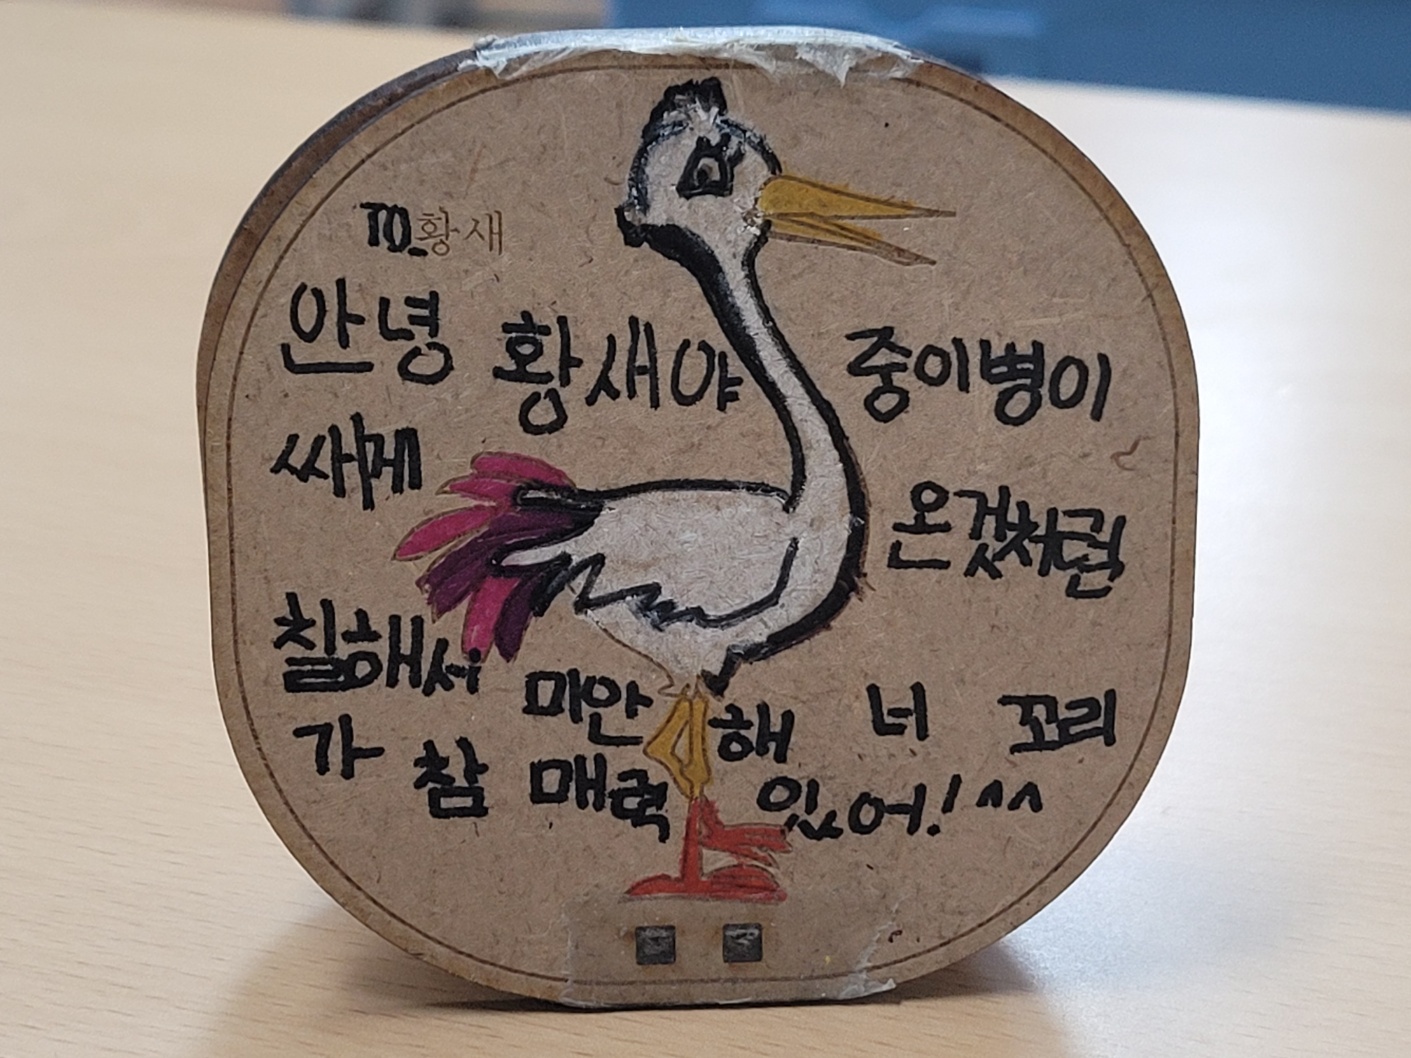 TO_황새
안녕 황새야 중이병이
온것처럼
칠해서 미안해 너 꼬리
가 참 매력 있어!^^